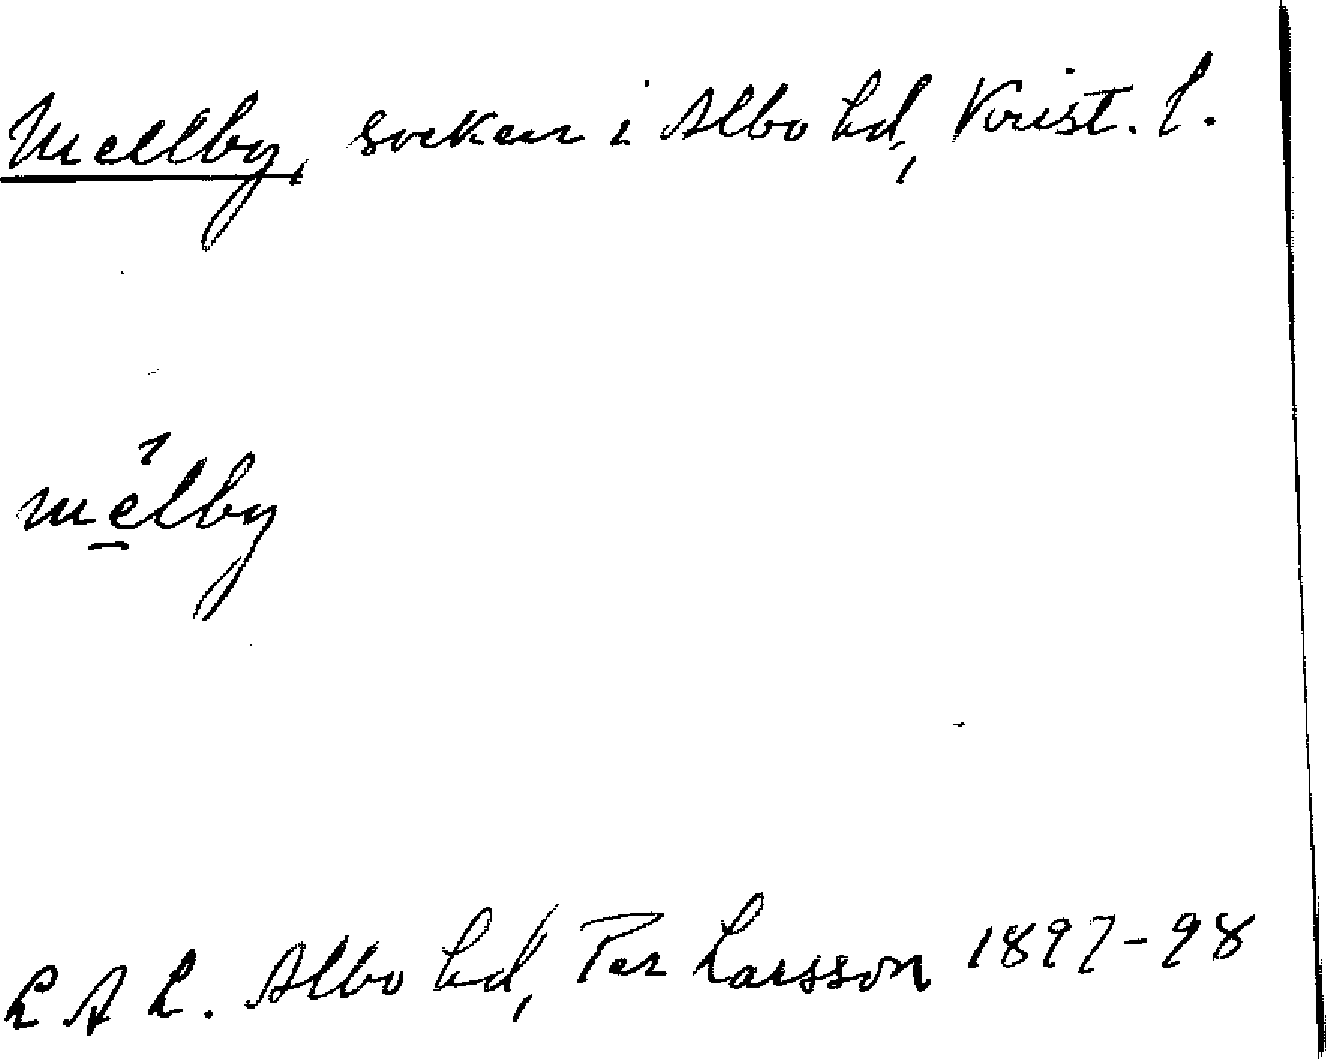 Mellby, socken i Albo hd, Krist. l.
mėlby
L A L. Albo hd, Per Larsson 1897-98